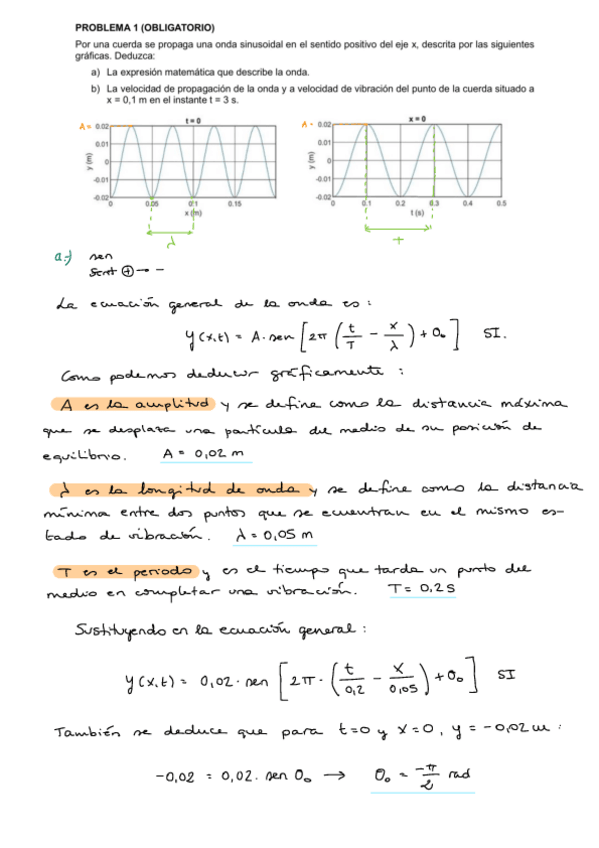 PROBLEMA 1 (OBLIGATORIO)
Por una cuerda se propaga una onda sinusoidal en el sentido positivo del eje x, descrita por las siguientes
gráficas. Deduzca:
a) La expresión matemática que describe la onda.
b) La velocidad de propagación de la onda y a velocidad de vibración del punto de la cuerda situado a
x = 0,1 m en el instante t = 3 s.
t = 0
A = 0.02
0.01
0
-0.01
-0.02
y (m)
0 0.05 0.1 0.15
x (m)
λ
x = 0
A - 0.02
0.01
0
-0.01
-0.02
y (m)
0 0.1 0.2 0.3 0.4 0.5
t (s)
T
a-) sen
Sent ⊕ → -
La ecuación general de la onda es:
y(x,t) = A · sen [2π (t/T - x/λ) + θ₀] SI.
Como podemos deducir gráficamente:
A es la amplitud y se define como la distancia máxima
que se desplaza una partícula del medio de su posición de
equilibrio. A = 0,02 m
λ es la longitud de onda y se define como la distancia
mínima entre dos puntos que se ecuentran en el mismo es-
tado de vibración. λ = 0,05 m
T es el periodo y es el tiempo que tarda un punto del
medio en completar una vibración. T = 0,2 s
Sustituyendo en la ecuación general:
y(x,t) = 0,02 · sen [2π · (t/0,2 - x/0,05) + θ₀] SI
También se deduce que para t=0 y x=0, y = -0,02 m:
-0,02 = 0,02 · sen θ₀ → θ₀ = -π/2 rad